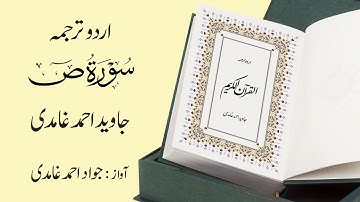 اردو ترجمہ
سُوْرَةُ ص
جاوید احمد غامدی
آواز : جواد احمد غامدی
اردو ترجمہ
القرآن الکریم
جاوید احمد غامدی